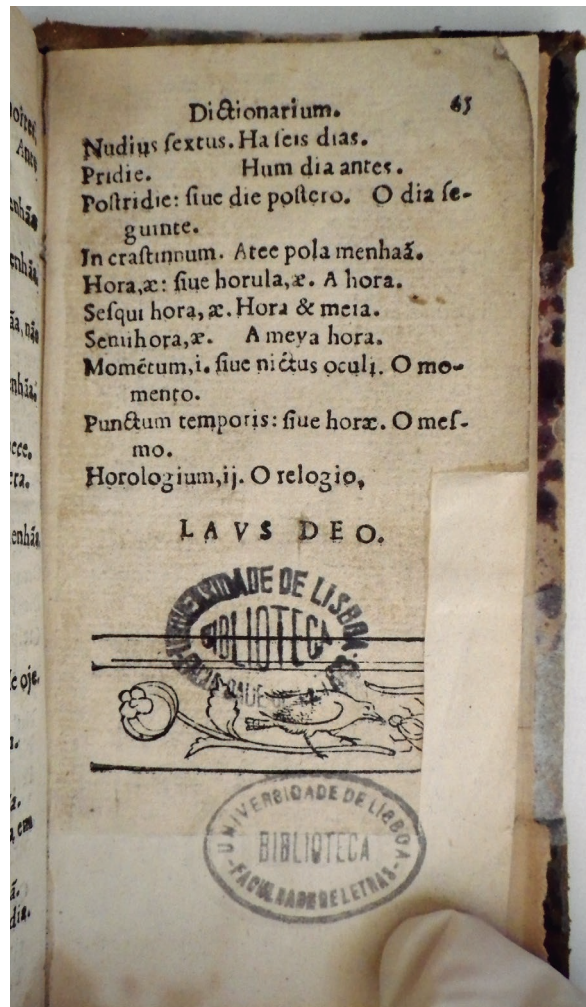 Dictionarium. 65
Nudius ſextus. Ha ſeis dias.
Pridie. Hum dia antes.
Poſtridie: ſiue die poſtero. O dia ſe-
guinte.
In craſtinnum. Atee pola menhaã.
Hora,æ: ſiue horula,æ. A hora.
Seſqui hora, æ. Hora & meia.
Semihora,æ. A meya hora.
Momẽtum,i. ſiue nictus oculi. O mo-
mento.
Punctum temporis: ſiue horæ. O meſ-
mo.
Horologium,ij. O relogio,
LAVS DEO.
UNIVERSIDADE DE LISBOA
BIBLIOTECA
UNIVERSIDADE DE LISBOA
BIBLIOTECA
FACULDADE DE LETRAS